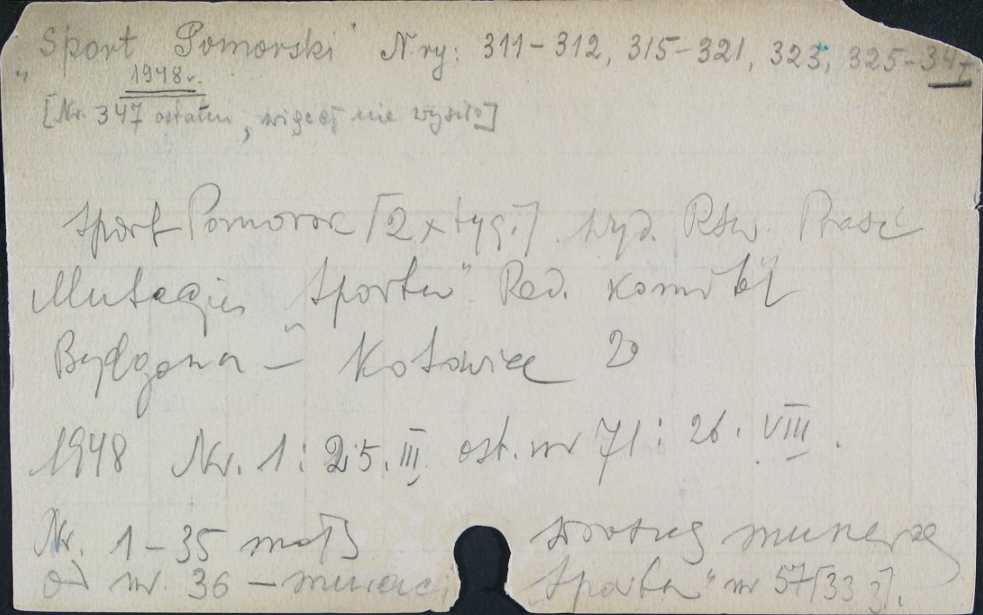 „Sport Pomorski" N-ry: 311-312, 315-321, 323, 325-347
1948 r.
[Nr. 347 ostatni, więcej nie wyszło]
Sport Pomorski [2 x tyg.] Wyd. Rsw. Prasa
Mutacja „Sportu" Red. komitet
Bydgoszcz - Katowice 2°
1948 Nr. 1: 25. III ost. nr 71: 26. VIII.
Nr. 1-35 mają
numerację
od nr. 36 - numeracj
„Sportu" nr 57 [33 ?].